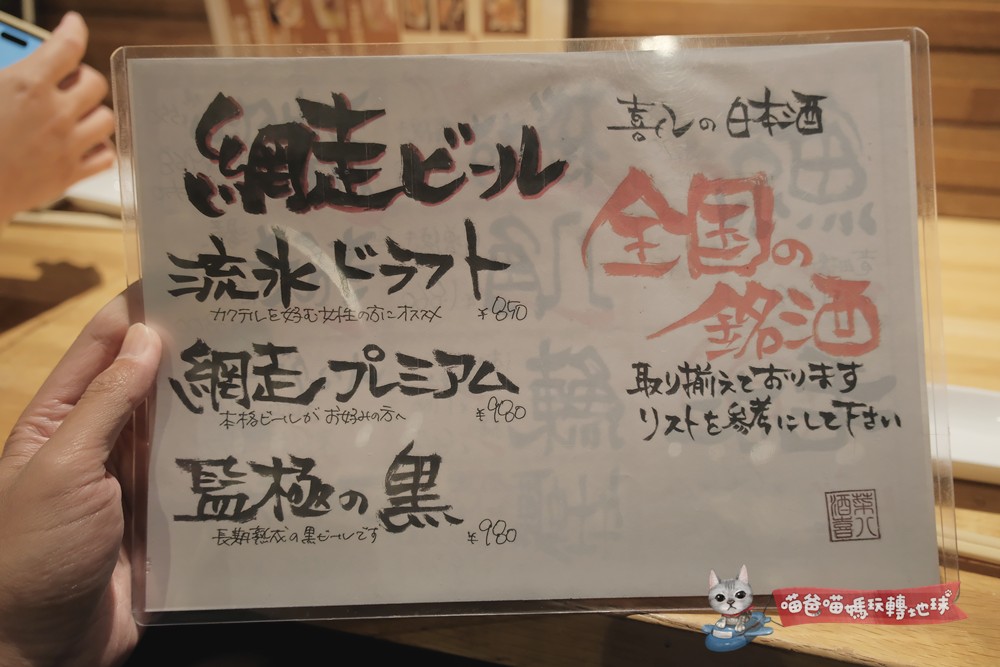 網走ビール
流氷ドラフト
カクテルを好む女性の方にオススメ ¥850
網走プレミアム
本格ビールがお好みの方へ ¥980
監極の黒
長期熟成の黒ビールです ¥980
の日本酒
全国の
銘酒
取り揃えております
リストを参考にして下さい
酒喜
栄八
喵爸喵媽玩轉地球